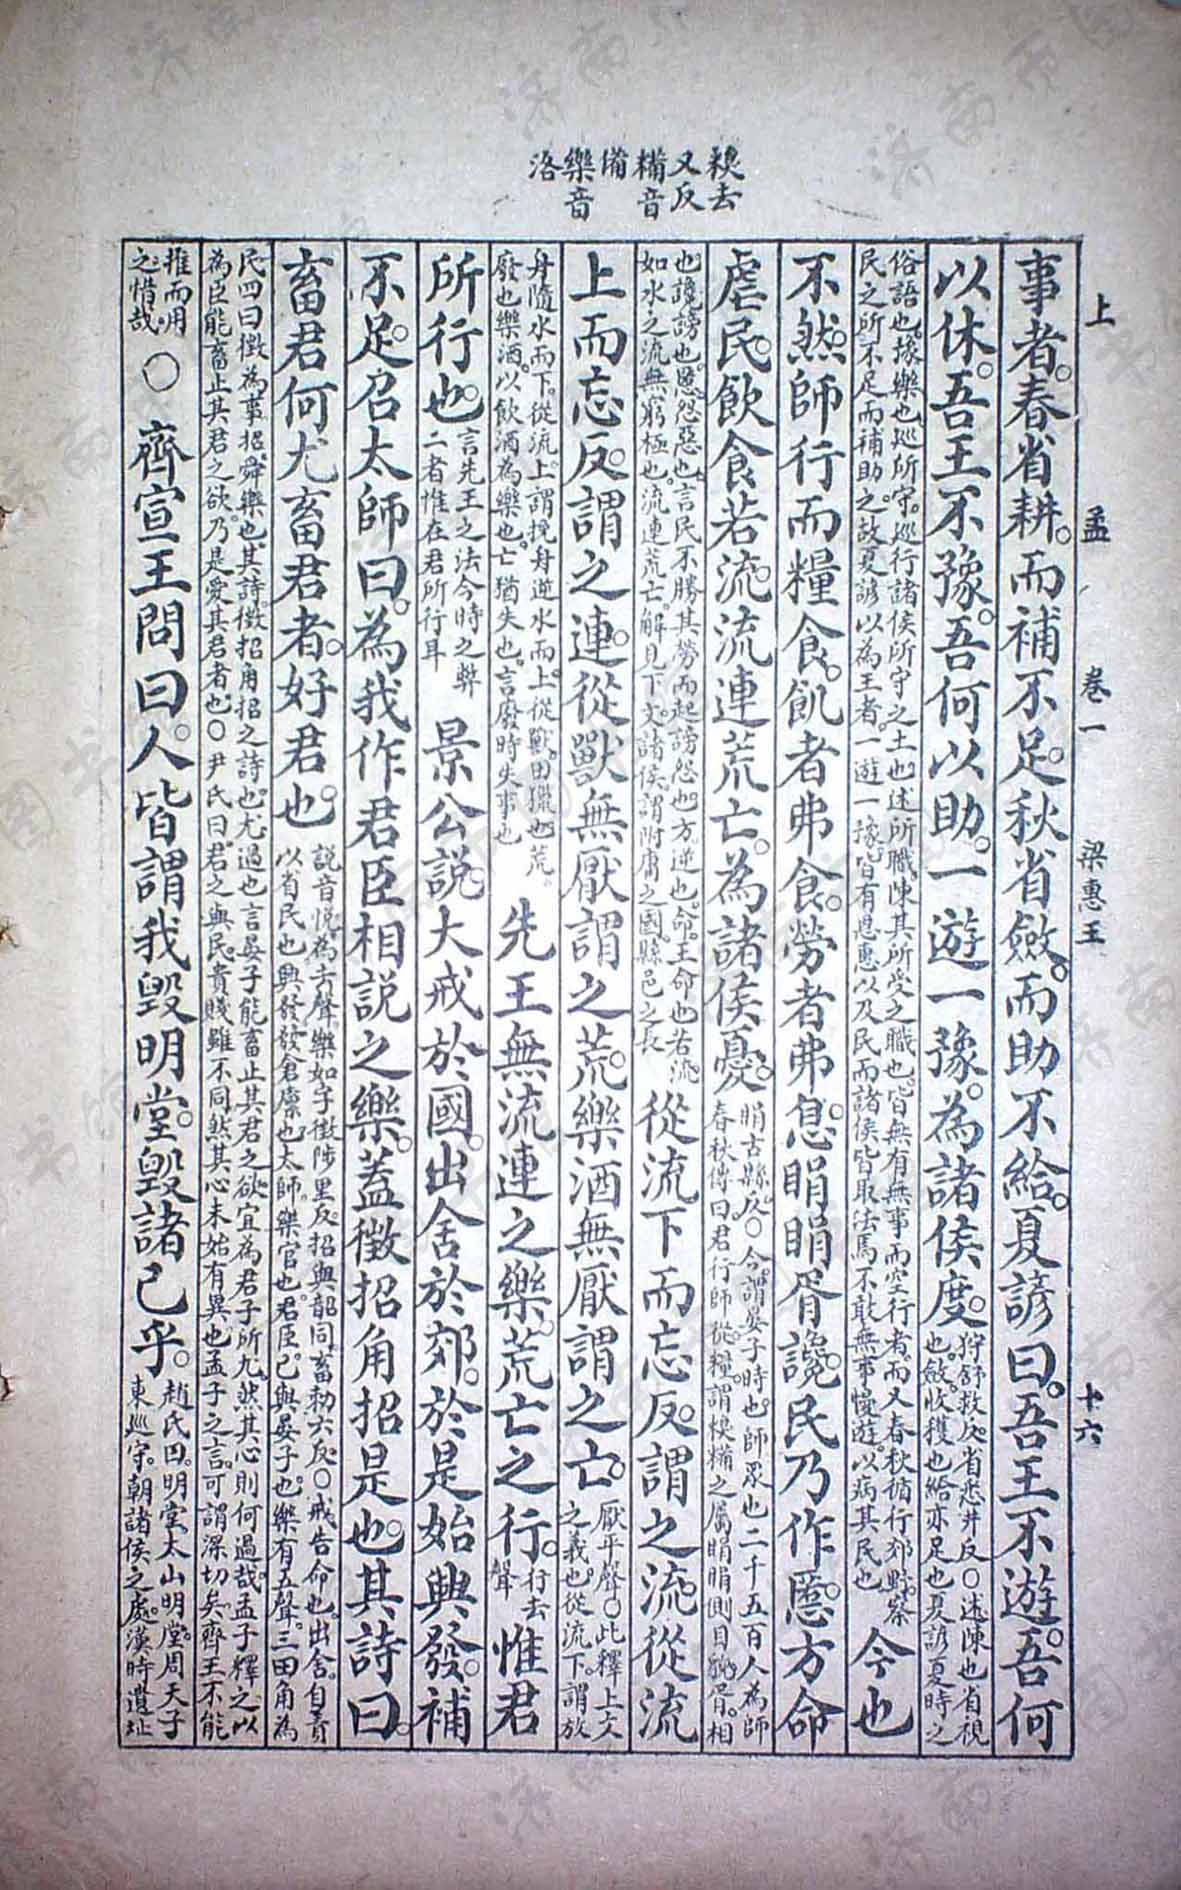 糗去
又反
糒音
備
樂音
洛
上 孟 卷一 梁惠王 十六
事者春省耕而補不足秋省斂而助不給夏諺曰吾王不遊吾何
以休吾王不豫吾何以助一遊一豫為諸侯度
狩舒救反省悉井反○述陳也省視
也斂收獲也給亦足也夏諺夏時之
俗語也豫樂也巡所守巡行諸侯所守之土也述所職陳其所受之職也皆無有無事而空行者而又春秋循行郊野察
民之所不足而補助之故夏諺以為王者一遊一豫皆有恩惠以及民而諸侯皆取法焉不敢無事慢遊以病其民也
今也
不然師行而糧食飢者弗食勞者弗息睊睊胥讒民乃作慝方命
虐民飲食若流流連荒亡為諸侯憂
睊古縣反○今謂晏子時也師眾也二千五百人為師
春秋傳曰君行師從糧謂糗糒之屬睊睊側目貌胥相
也讒謗也慝怨惡也言民不勝其勞而起謗怨也方逆也命王命也若流
如水之流無窮極也流連荒亡解見下文諸侯謂附庸之國縣邑之長
從流下而忘反謂之流從流
上而忘反謂之連從獸無厭謂之荒樂酒無厭謂之亡
厭平聲○此釋上文
之義也從流下謂放
舟隨水而下從流上謂挽舟逆水而上從獸田獵也荒
廢也樂酒以飲酒為樂也亡猶失也言廢時失事也
先王無流連之樂荒亡之行
行去
聲
惟君
所行也
言先王之法今時之弊
二者惟在君所行耳
景公說大戒於國出舍於郊於是始興發補
不足召太師曰為我作君臣相說之樂蓋徵招角招是也其詩曰
畜君何尤畜君者好君也
說音悅為去聲樂如字徵陟里反招與韶同畜敕六反○戒告命也出舍自責
以省民也興發發倉廩也太師樂官也君臣己與晏子也樂有五聲三曰角為
民四曰徵為事招舜樂也其詩徵招角招之詩也尤過也言晏子能畜止其君之欲宜為君子所尤然其心則何過哉孟子釋之以
為臣能畜止其君之欲乃是愛其君者也○尹氏曰君之與民貴賤雖不同然其心未始有異也孟子之言可謂深切矣齊王不能
推而用
之惜哉
○齊宣王問曰人皆謂我毀明堂毀諸已乎
趙氏曰明堂太山明堂周天子
東巡守朝諸侯之處漢時遺址